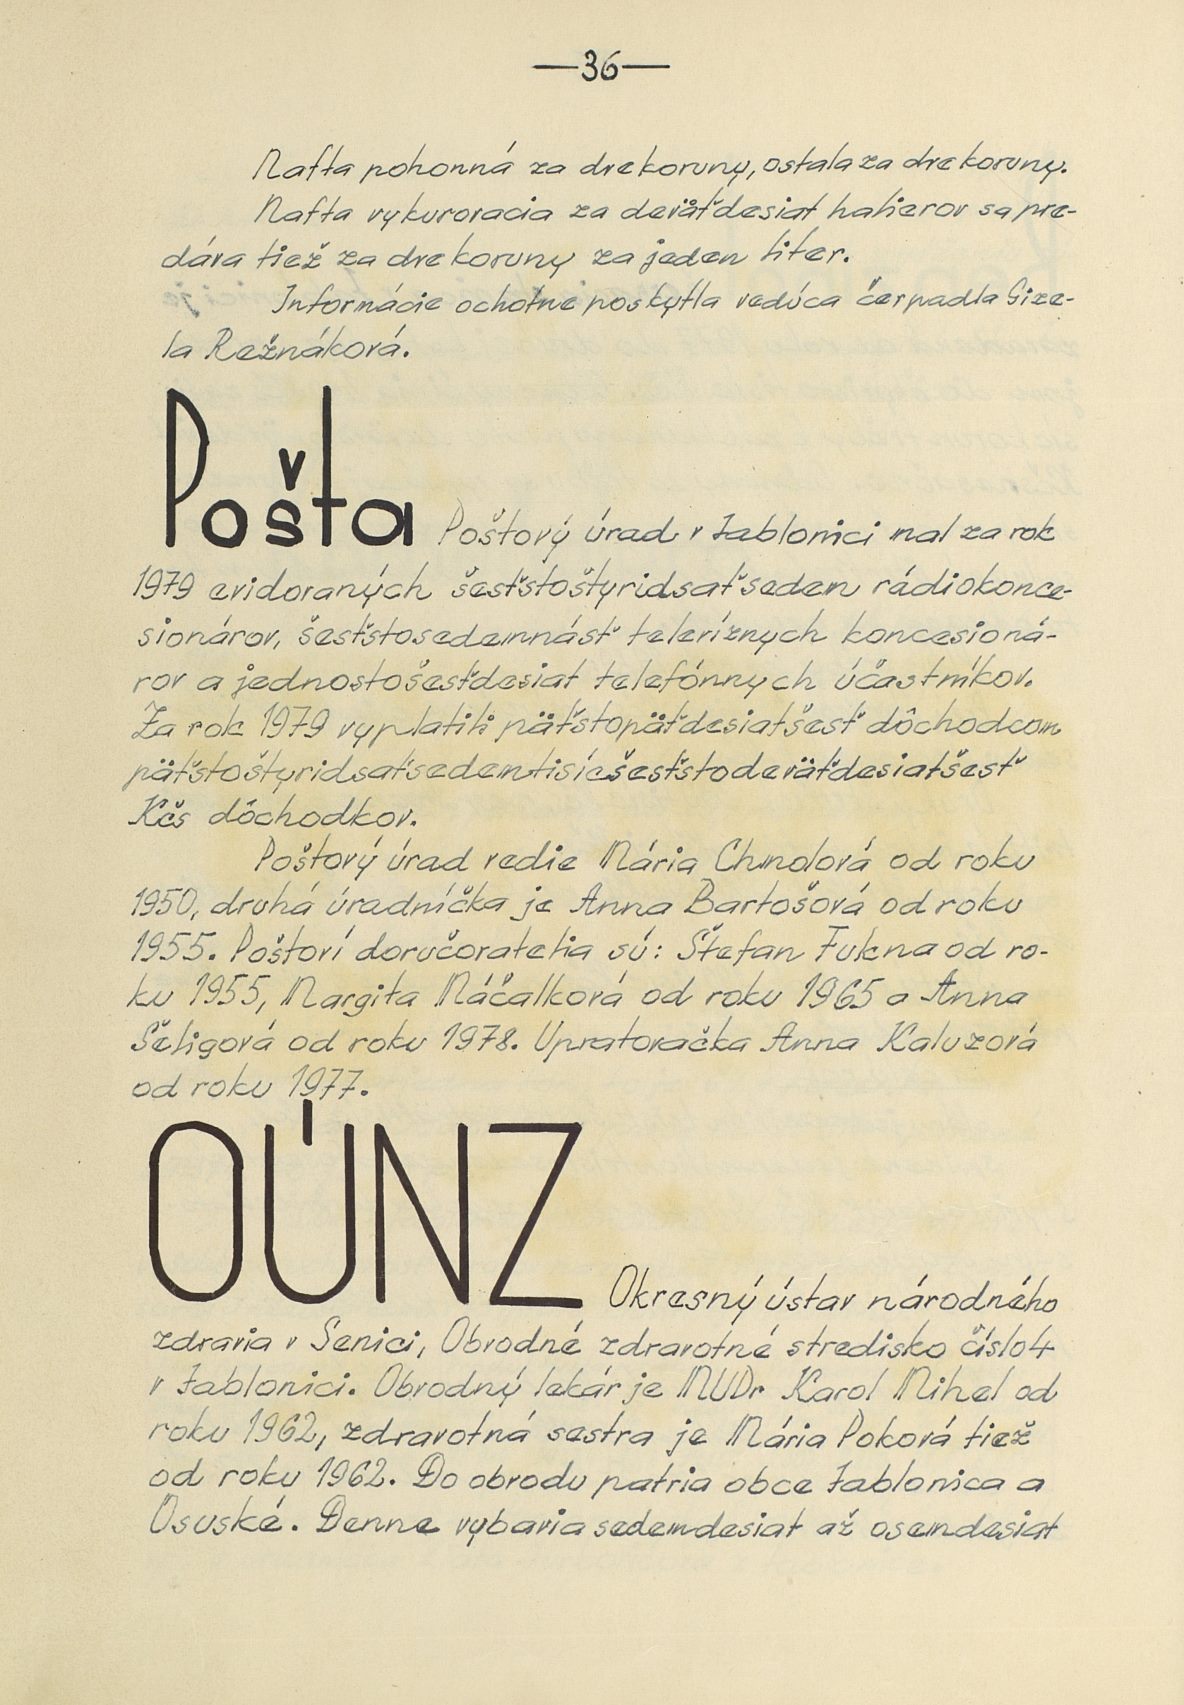 —36—
Nafta pohonná za dve koruny, ostala za dve koruny.
Nafta vykurovacia za deväťdesiat halierov sa pre-
dáva tiež za dve koruny za jeden liter.
Informácie ochotne poskytla vedúca čerpadla Gize-
la Režnáková.
Pošta Poštový úrad v Jablonici mal za rok
1979 evidovaných šesťstoštyridsaťsedem rádiokonce-
sionárov, šesťstosedemnásť televíznych koncesioná-
rov a jednostošesťdesiat telefónnych účastníkov.
Za rok 1979 vyplatili päťstopäťdesiatšesť dôchodcom
päťstoštyridsaťsedemtisícšesťstodeväťdesiatšesť
Kčs dôchodkov.
Poštový úrad vedie Mária Chmolová od roku
1950, druhá úradníčka je Anna Bartošová od roku
1955. Poštoví doručovatelia sú: Štefan Fukna od ro-
ku 1955, Margita Máčalková od roku 1965 a Anna
Sčeligová od roku 1978. Upratovačka Anna Kaluzová
od roku 1977.
OÚNZ Okresný ústav národného
zdravia v Senici, Obvodné zdravotné stredisko číslo 4
v Jablonici. Obvodný lekár je MUDr Karol Mihel od
roku 1962, zdravotná sestra je Mária Poková tiež
od roku 1962. Do obvodu patria obce Jablonica a
Osuské. Denne vybavia sedemdesiat až osemdesiat